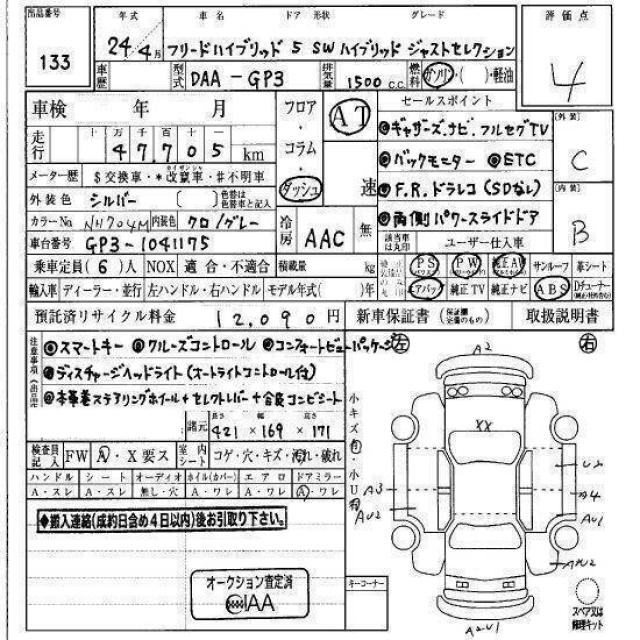 出品番号 年式 車名 ドア 形状 グレード 評価点
133 24年4月 フリードハイブリッド 5 SW ハイブリッド ジャストセレクション 4
車歴 型式 DAA-GP3 排気量 1500 c.c. 燃料 ガソリン・( )・軽油
車検 年 月 フロア・コラム・ダッシュ AT 速 セールスポイント 外装 C
走行 十 万 千 百 十 一
47705 km
◎ギャザーズ.ナビ.フルセグTV
◎バックモニター ◎ETC
メーター歴 $交換車・*改竄車・#不明車
◎F.R.ドラレコ(SDなし) 内装 B
外装色 シルバー ( ) 色替は色替車と記入
◎両側パワースライドドア
カラーNo NH704M 内装色 クロ/グレー 冷房 AAC 無
車台番号 GP3-1041175 該当車は丸印 ユーザー仕入車
乗車定員(6)人 NOX 適合・不適合 積載量 kg PS PW 純正AW サンルーフ 革シート
輸入車 ディーラー・並行 左ハンドル・右ハンドル モデル年式( )年 エアバック 純正TV 純正ナビ ABS
預託済リサイクル料金 12,090円 新車保証書 取扱説明書
注意事項
◎スマートキー ◎クルーズコントロール ◎コンフォートビューパッケージ
◎ディスチャージヘッドライト(オートライトコントロール付)
◎本革巻ステアリングホイール+セレクトレバー+合皮コンビシート
諸元 長さ 幅 高さ
421×169×171
検査員記入 FW A・X要ス 室内シート コゲ・穴・キズ・汚れ・破れ
ハンドル シート オーディオ ホイル(カバー) エアロ ドアミラー
A・スレ A・スレ 無し・穴 A・ワレ A・ワレ A・ワレ
小キズ有・小U有
◆搬入連絡(成約日含め4日以内)後お引取り下さい。
オークション査定済
IAA
キーコーナー
左 右
A2
XX
U2
A3
A4
AU2
AU1
AU2
A2U1
スペア又は修理キット